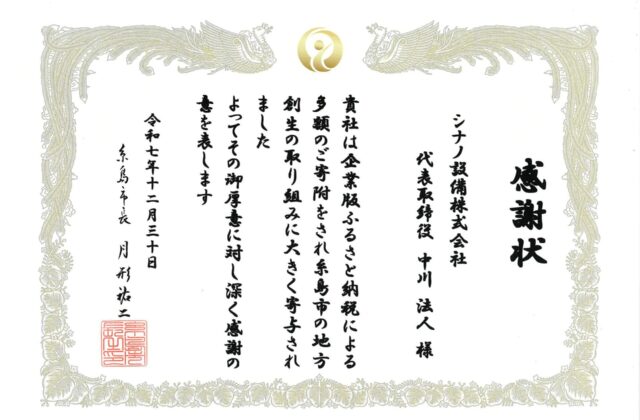 感謝状
シナノ設備株式会社
代表取締役 中川 法人 様
貴社は企業版ふるさと納税による
多額のご寄附をされ糸島市の地方
創生の取り組みに大きく寄与され
ました
よってその御厚意に対し深く感謝の
意を表します
令和七年十二月三十日
糸島市長 月形祐二